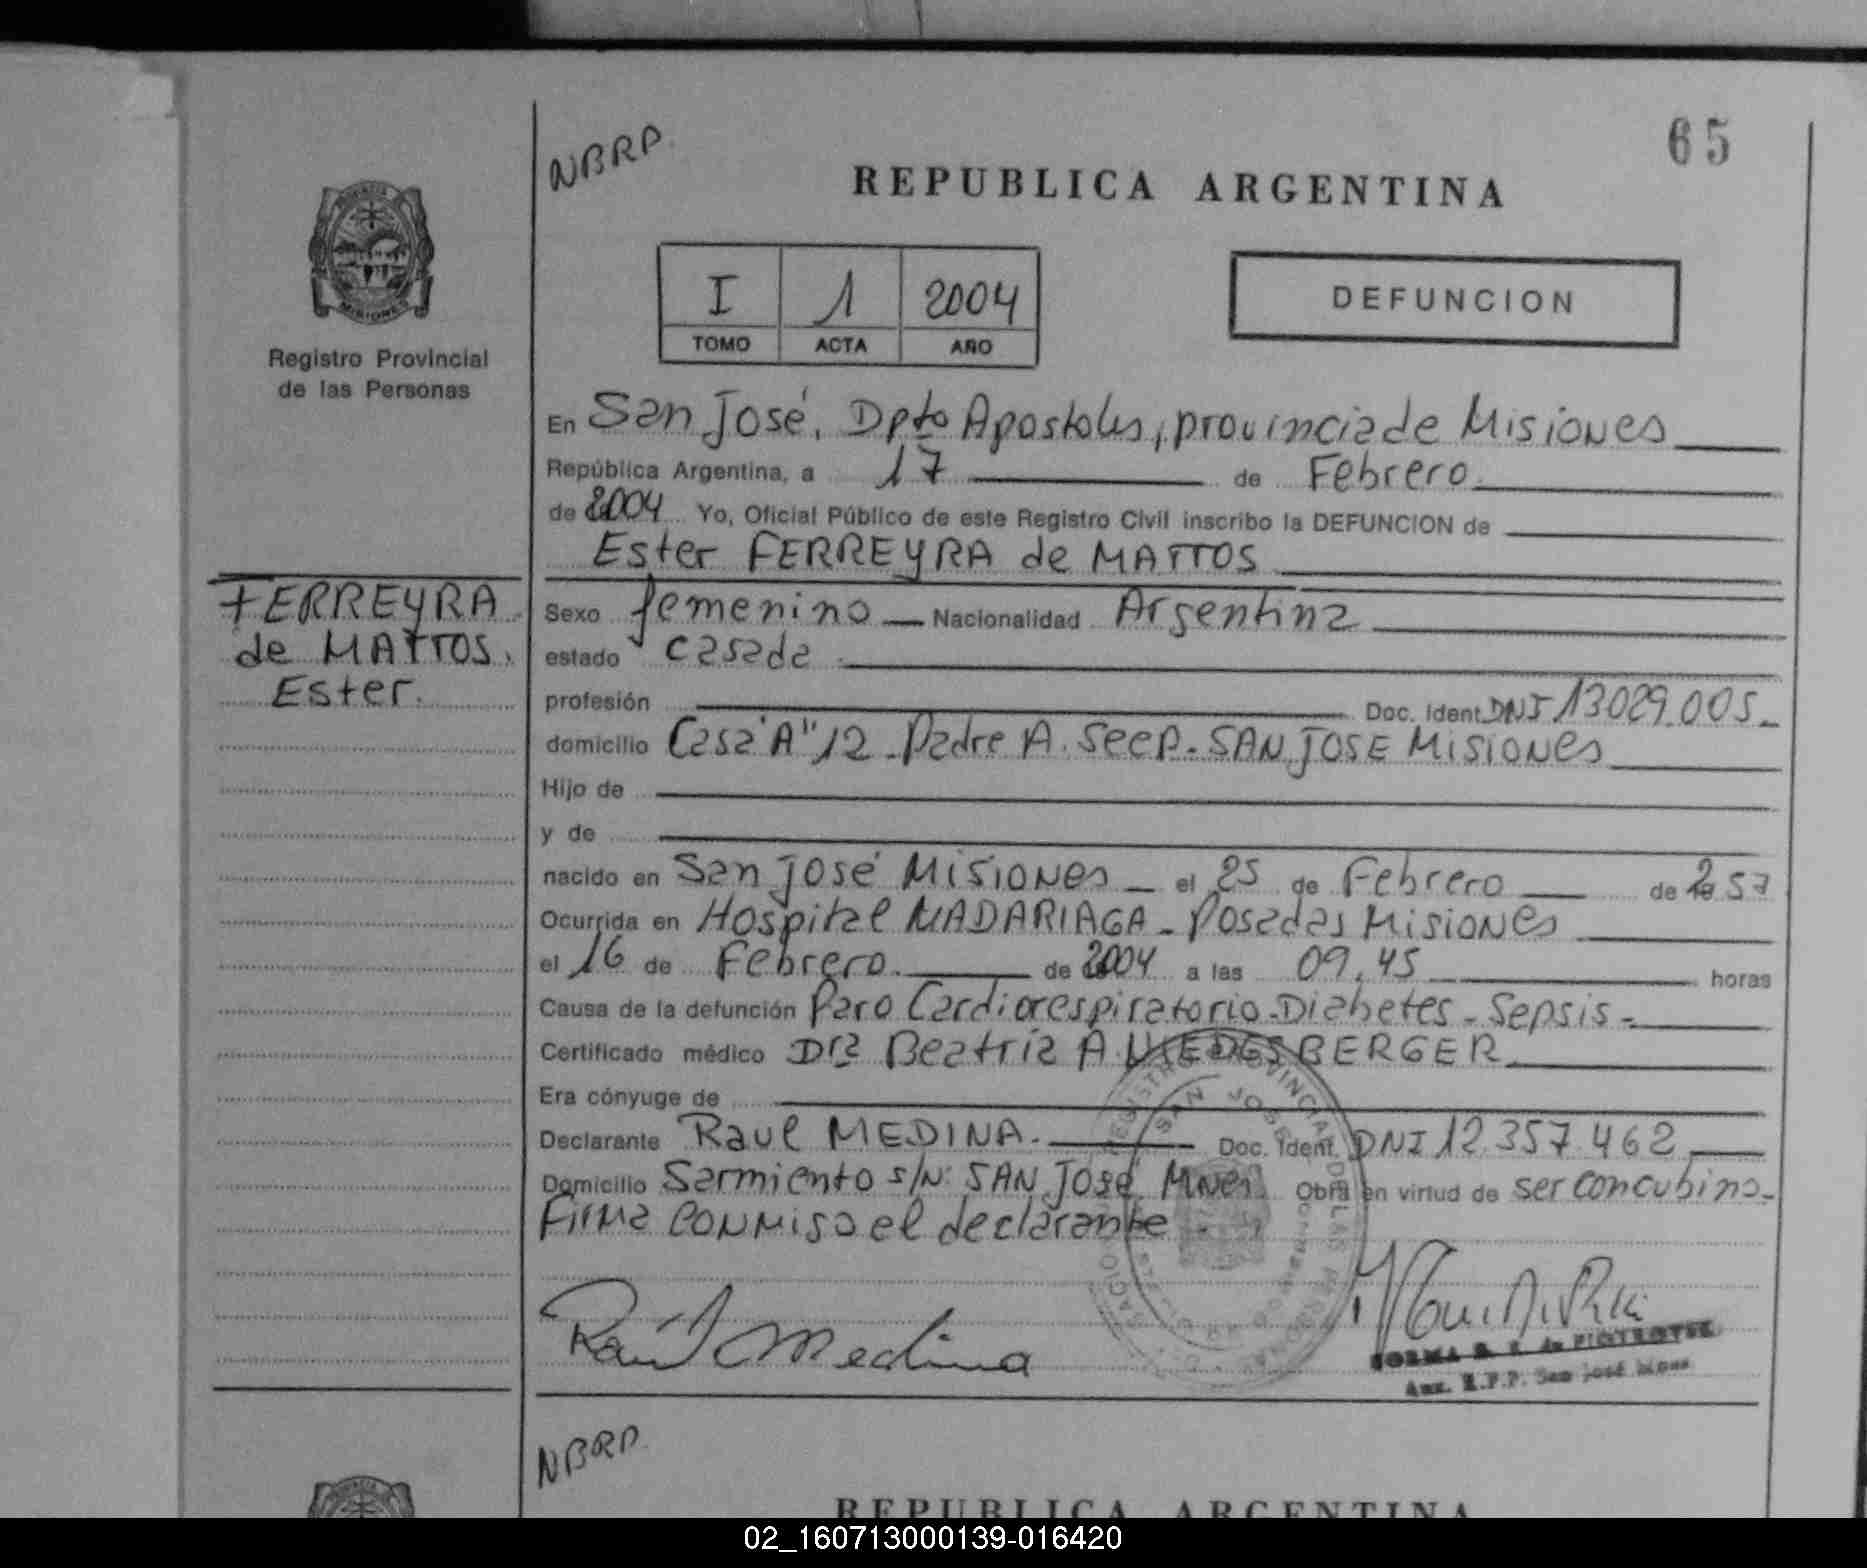 65
NBRP.
REPUBLICA ARGENTINA
MISIONES
Registro Provincial
de las Personas
I 1 2004
TOMO ACTA AÑO
DEFUNCION
En San José, Dpto Apostoles, provincia de Misiones
República Argentina, a 17 de Febrero.
de 2004 Yo, Oficial Público de este Registro Civil inscribo la DEFUNCION de
Ester FERREYRA de MATTOS
FERREYRA
de MATTOS.
Ester.
Sexo femenino Nacionalidad Argentina
estado casada
profesión Doc. Ident. DNI 13029.005.
domicilio Casa "A" 12 - Padre A. SeeP. SAN JOSE MISIONES
Hijo de
y de
nacido en San José Misiones el 25 de Febrero de 57
Ocurrida en Hospital MADARIAGA - Posadas Misiones
el 16 de Febrero. de 2004 a las 09,45 horas
Causa de la defunción Paro Cardiorespiratorio - Diabetes - Sepsis -
Certificado médico Dra Beatriz A.
Era cónyuge de
Declarante Raul MEDINA. Doc. Ident. DNI 12.357.462
Domicilio Sarmiento s/N: SAN José, Mnes. Obra en virtud de ser concubino-
Firma conmigo el declarante.
Raúl Medina
NORMA
Aux. R.P.P. San José Mnes
NBRP.
REPUBLICA ARGENTINA
02_160713000139-016420